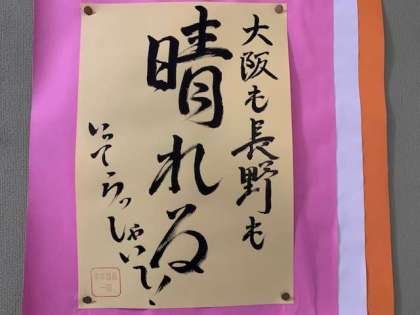 大阪も長野も
晴れる
いってらっしゃいて!